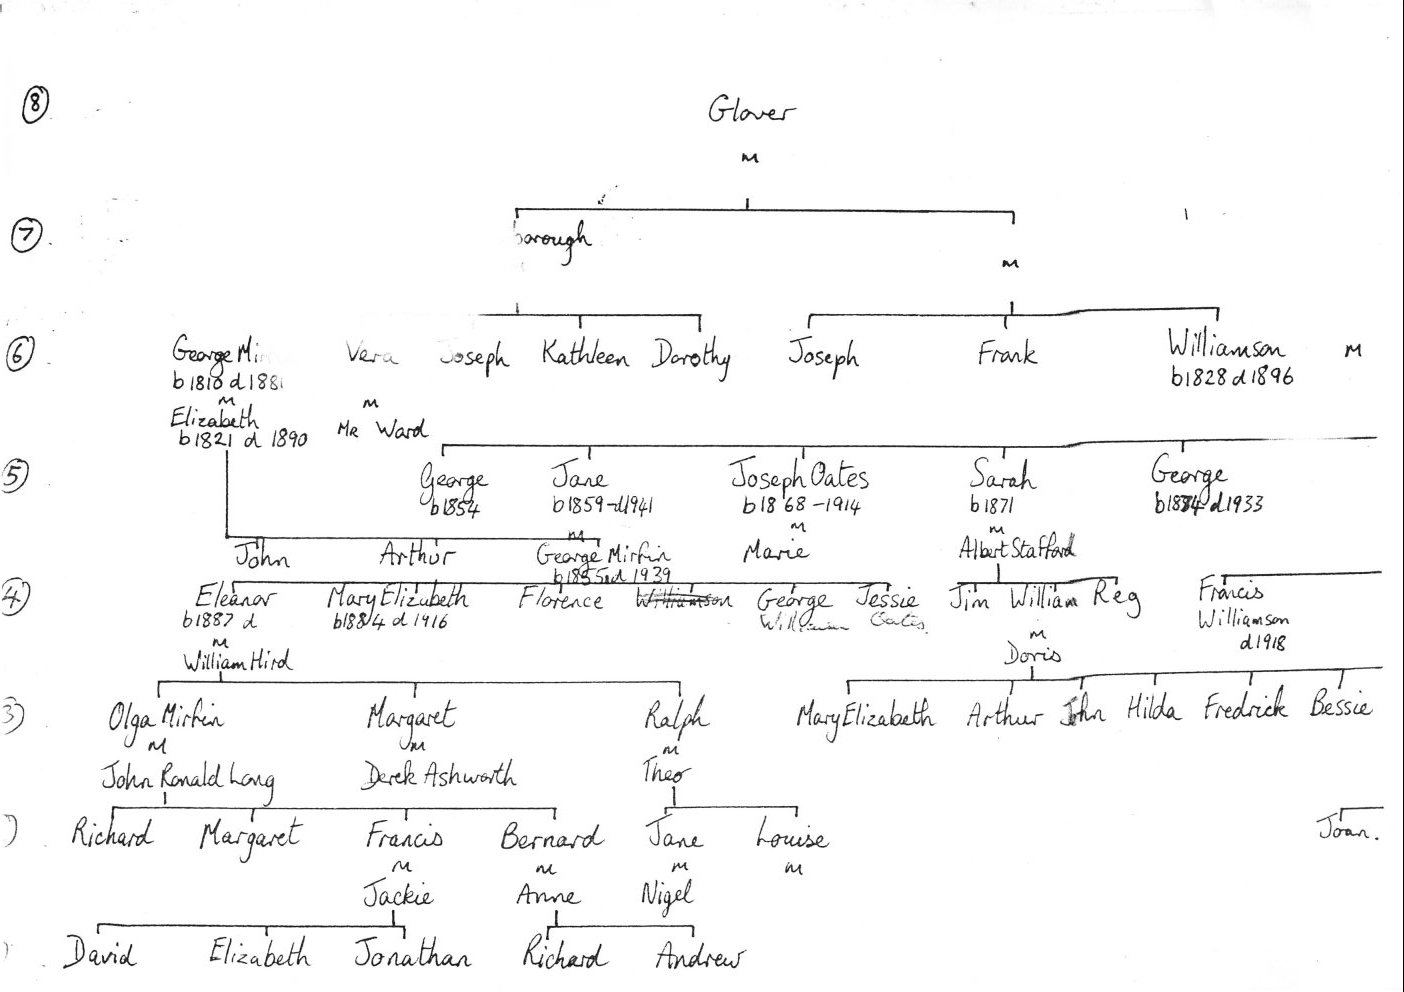 8
Glover
m
7
orough
m
6
George Mi
b 1810 d 1881
m
Elizabeth
b 1821 d 1890
Vera
m
Mr Ward
Joseph
Kathleen
Dorothy
Joseph
Frank
Williamson
b1828 d 1896
m
5
George
b 1854
Jane
b 1859-d1941
m
Joseph Oates
b 1868 - 1914
m
Marie
Sarah
b 1871
m
Albert Stafford
George
d 1933
John
Arthur
George Mirfin
b 1855 d 1939
4
Eleanor
b 1887 d
m
William Hird
Mary Elizabeth
b 1884 d 1916
Florence
Williamson
George
William
Jessie
Oates
Jim
William
m
Doris
Reg
Francis
Williamson
d 1918
3
Olga Mirfin
m
John Ronald Long
Margaret
m
Derek Ashworth
Ralph
m
Theo
Mary Elizabeth
Arthur
John
Hilda
Fredrick
Bessie
Richard
Margaret
Francis
m
Jackie
Bernard
m
Anne
Jane
m
Nigel
Louise
m
Joan.
David
Elizabeth
Jonathan
Richard
Andrew